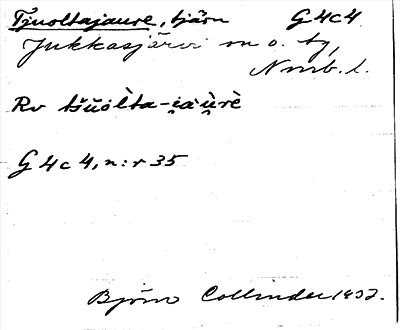 Tjuoltajaure, tjärn G4c4
Jukkasjärvi sn o. tg,
Nmb. l.
Rv tšŭòlta-i̯a'ùrè
G4c4, n:r 35
Björn Collinder 1932.